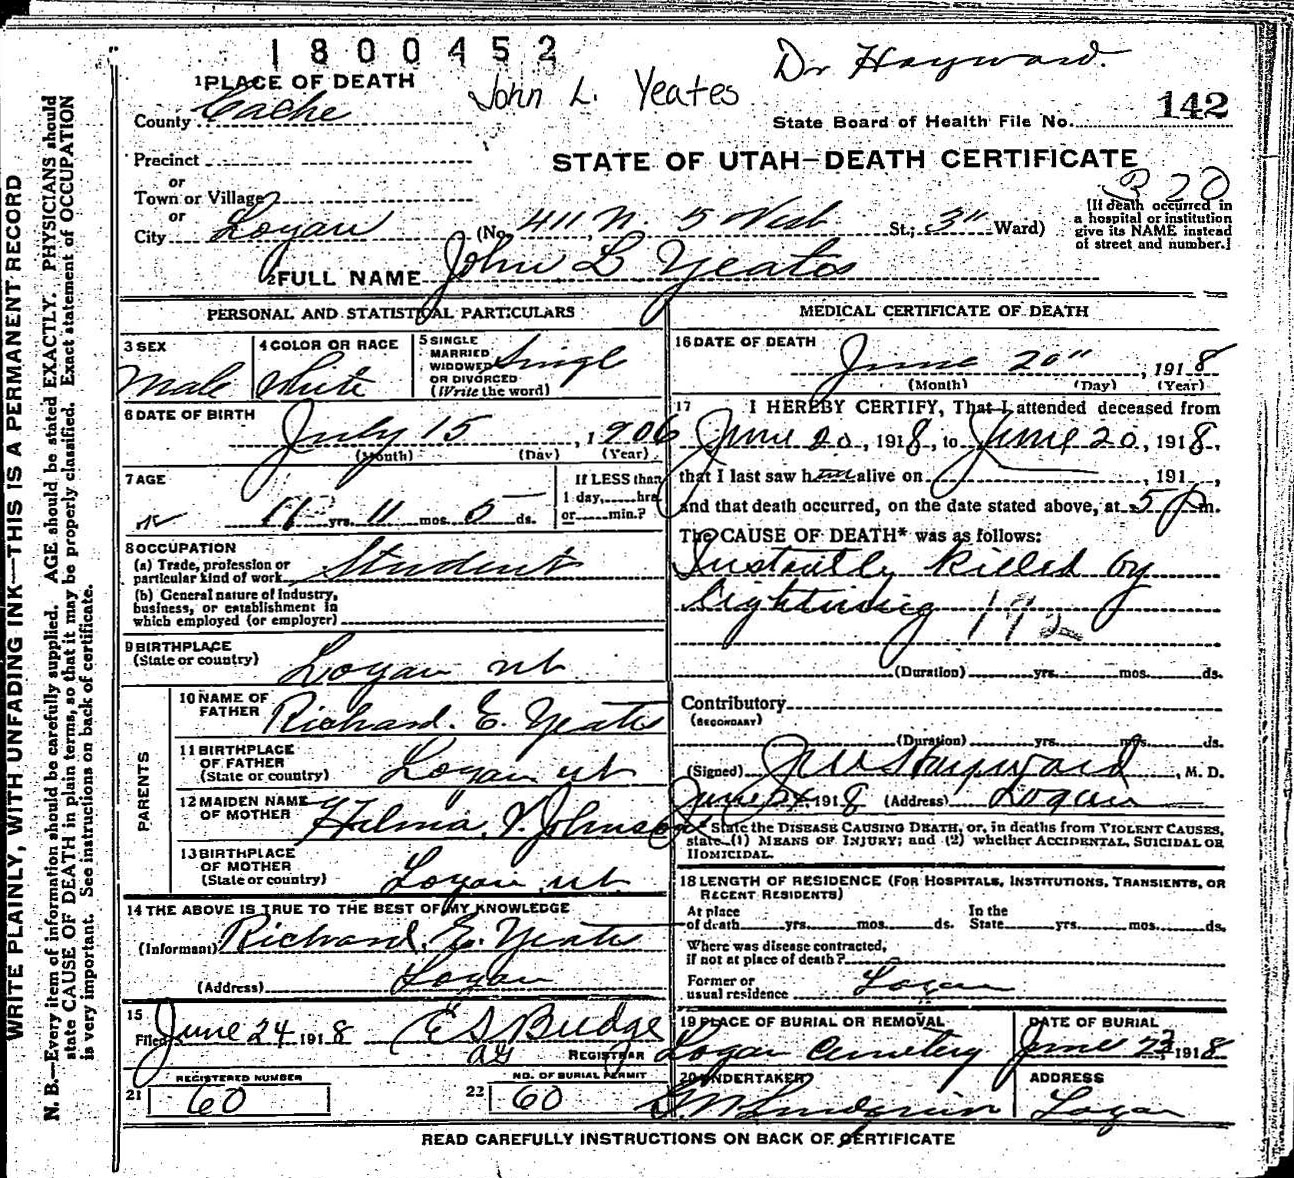 1800452
Dr Hayward.
John L. Yeates
1 PLACE OF DEATH
County Cache
State Board of Health File No. 142
Precinct
STATE OF UTAH—DEATH CERTIFICATE
or
Town or Village
320
or
City Logan (No. 411 N. 5 West St.; 3" Ward)
[If death occurred in a hospital or institution give its NAME instead of street and number.]
2 FULL NAME John L Yeates
PERSONAL AND STATISTICAL PARTICULARS
3 SEX
Male
4 COLOR OR RACE
White
5 SINGLE MARRIED WIDOWED OR DIVORCED (Write the word)
Single
6 DATE OF BIRTH
July 15, 1906
(Month) (Day) (Year)
7 AGE
11 yrs. 11 mos. 5 ds.
If LESS than 1 day,......hrs. or......min.?
8 OCCUPATION
(a) Trade, profession or particular kind of work Student
(b) General nature of industry, business, or establishment in which employed (or employer)
9 BIRTHPLACE
(State or country) Logan ut
PARENTS
10 NAME OF FATHER Richard. E. Yeates
11 BIRTHPLACE OF FATHER (State or country) Logan ut
12 MAIDEN NAME OF MOTHER Hilma. V. Johnson
13 BIRTHPLACE OF MOTHER (State or country) Logan ut.
14 THE ABOVE IS TRUE TO THE BEST OF MY KNOWLEDGE
(Informant) Richard. E. Yeates
(Address) Logan
15
Filed June 24 1918 E S Budge
REGISTRAR
REGISTERED NUMBER
21 60
NO. OF BURIAL PERMIT
22 60
MEDICAL CERTIFICATE OF DEATH
16 DATE OF DEATH
June 20", 1918
(Month) (Day) (Year)
17 I HEREBY CERTIFY, That I attended deceased from
June 20, 1918, to June 20, 1918,
that I last saw h im alive on , 191 ,
and that death occurred, on the date stated above, at 5 P m.
The CAUSE OF DEATH* was as follows:
Instantly killed by
lightning 192
(Duration) yrs. mos. ds.
Contributory
(SECONDARY)
(Duration) yrs. mos. ds.
(Signed) J W Hayward, M. D.
June 24 1918 (Address) Logan
* State the DISEASE CAUSING DEATH, or, in deaths from VIOLENT CAUSES, state (1) MEANS OF INJURY; and (2) whether ACCIDENTAL, SUICIDAL OR HOMICIDAL.
18 LENGTH OF RESIDENCE (FOR HOSPITALS, INSTITUTIONS, TRANSIENTS, OR RECENT RESIDENTS)
At place of death yrs. mos. ds. In the State yrs. mos. ds.
Where was disease contracted, if not at place of death?
Former or usual residence Logan
19 PLACE OF BURIAL OR REMOVAL
Logan Cemetery
DATE OF BURIAL
June 23 1918
20 UNDERTAKER
Lindquist
ADDRESS
Logan
READ CAREFULLY INSTRUCTIONS ON BACK OF CERTIFICATE
WRITE PLAINLY, WITH UNFADING INK—THIS IS A PERMANENT RECORD
N. B.—Every item of information should be carefully supplied. AGE should be stated EXACTLY. PHYSICIANS should
state CAUSE OF DEATH in plain terms, so that it may be properly classified. Exact statement of OCCUPATION
is very important. See instructions on back of certificate.